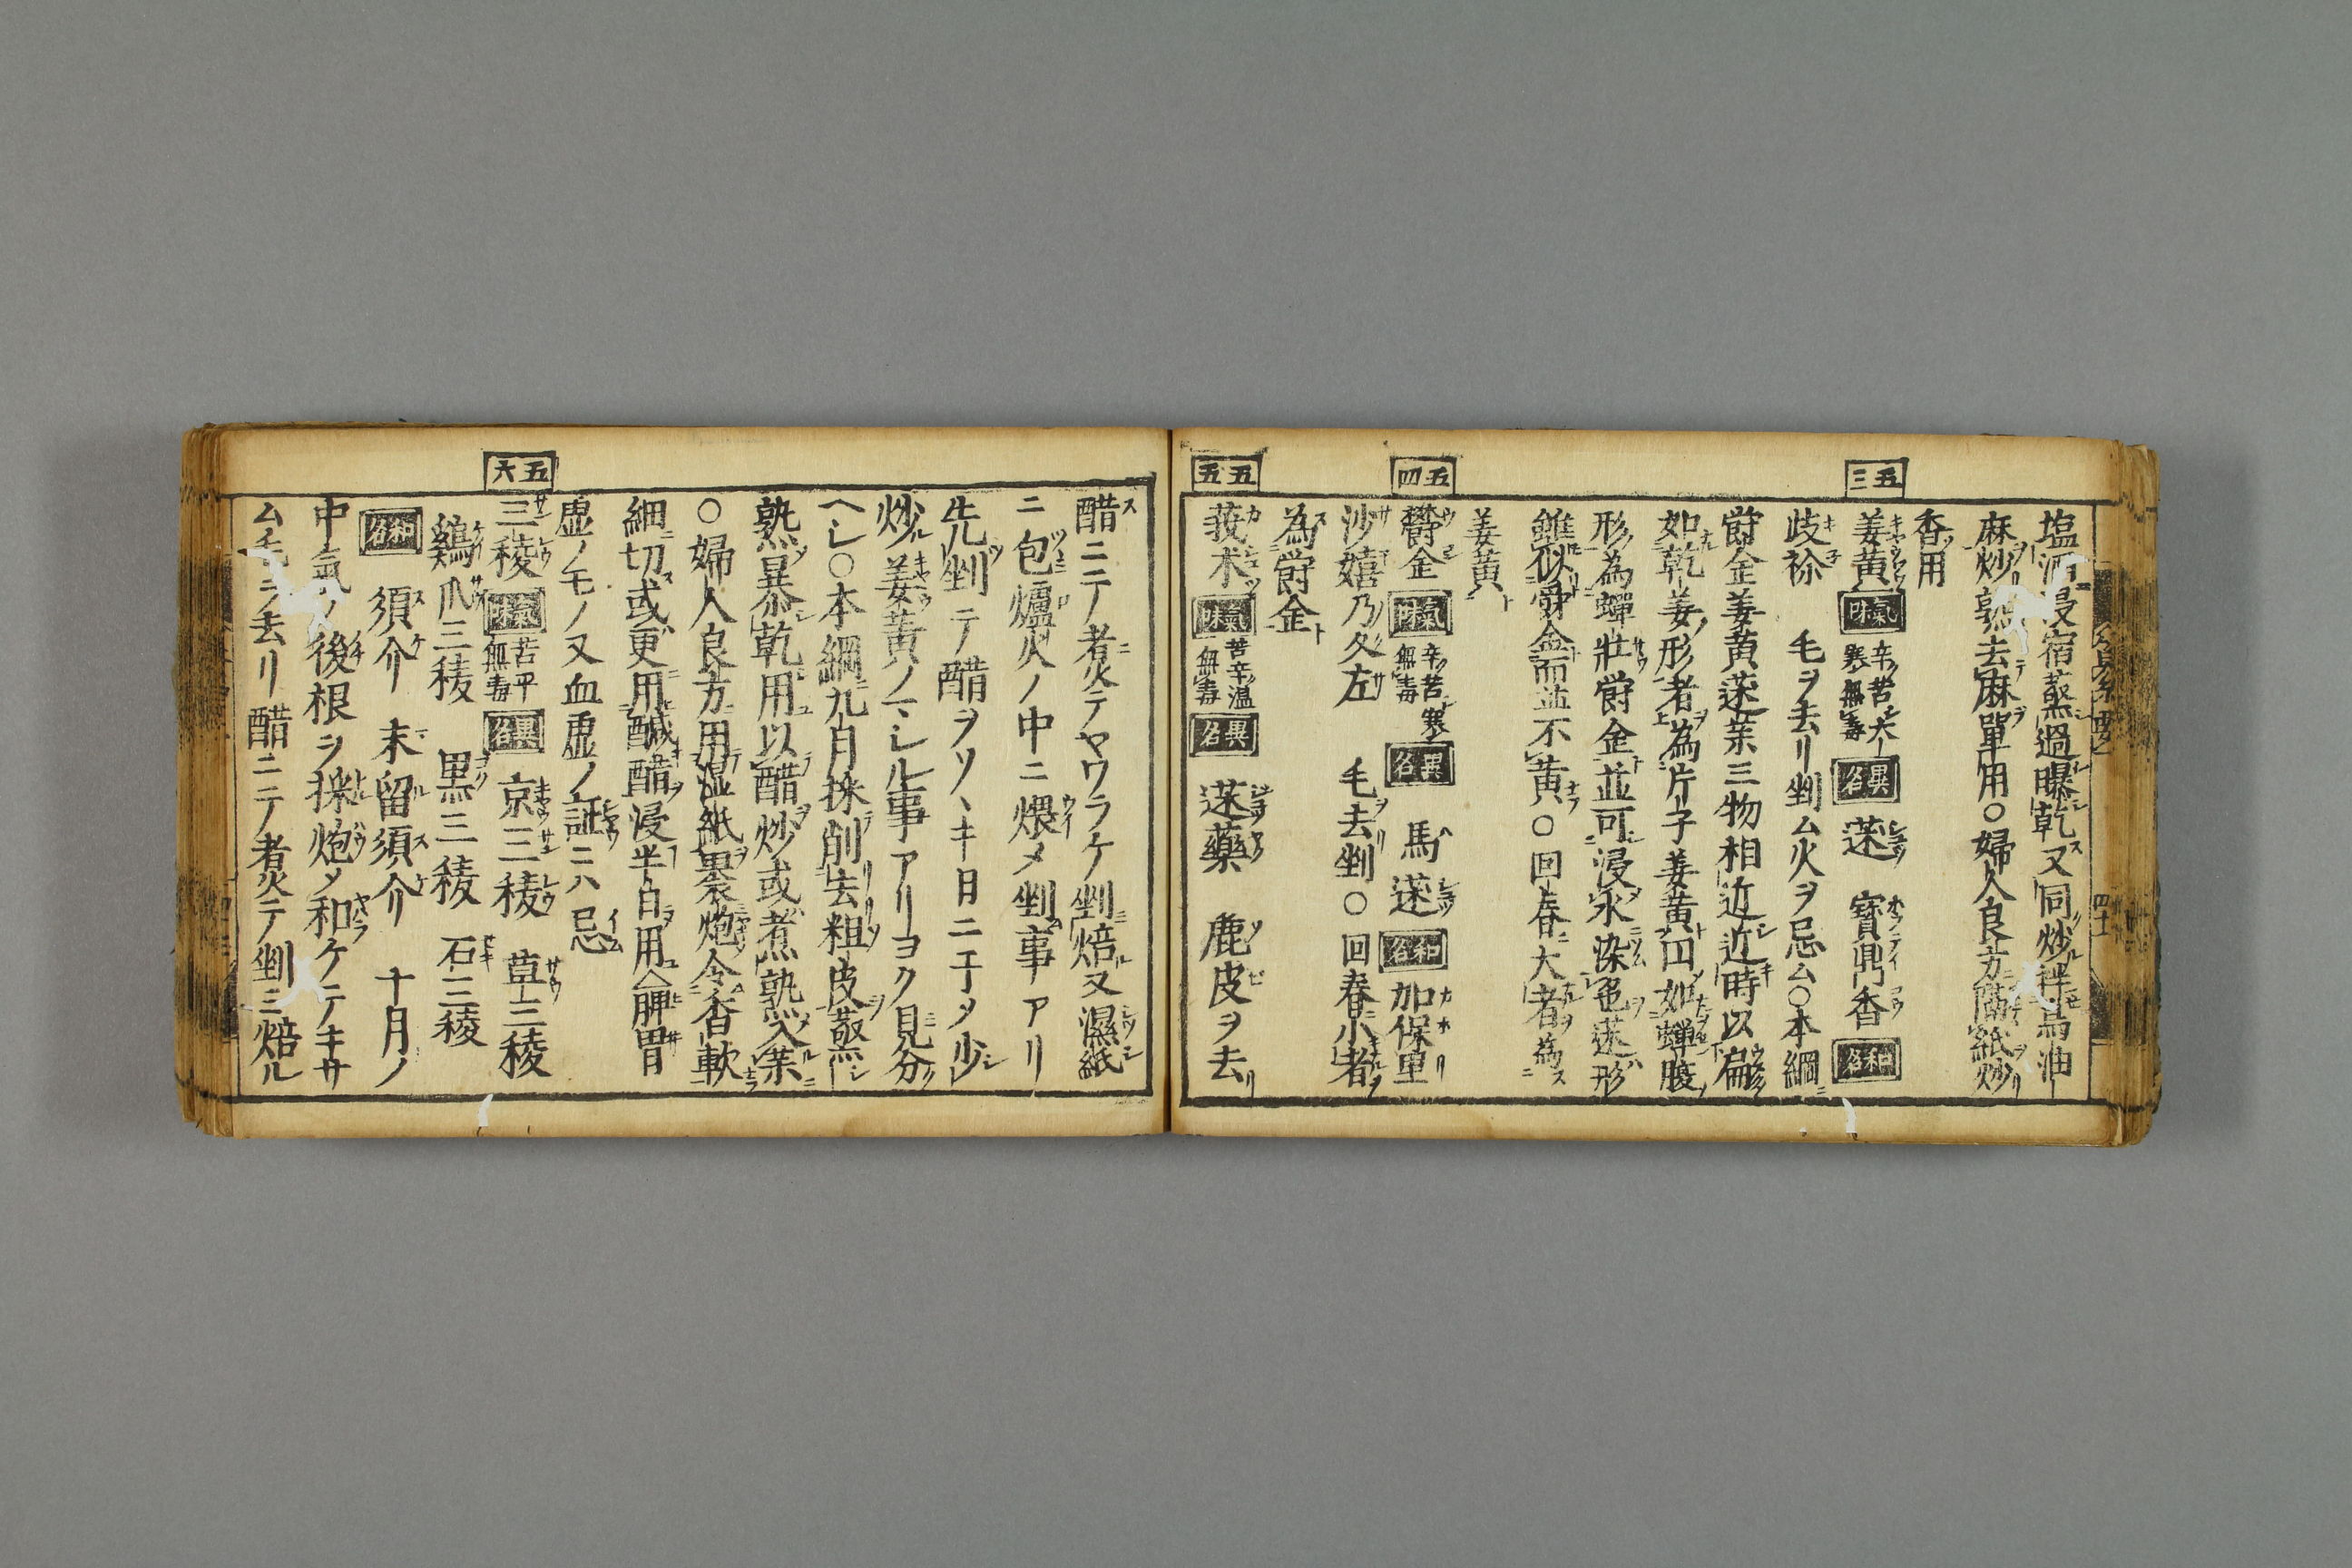 塩酒浸宿蒸過曝乾又同炒拌烏油
麻炒熟去麻單用○婦人良方隔紙炒
香用
五三
姜黄 氣味 辛苦大寒無毒 異名 蒁 寳鼎香 和名
岐祢 毛ヲ去リ剉ム火ヲ忌ム○本綱
欝金姜黄蒁薬三物相近近時以扁
如乾姜形者為片子姜黄円如蟬腹
形為蟬肚欝金並可浸水染色蒁形
雖似欝金而並不黄○回春大者為
姜黄
五四
欝金 氣味 辛苦寒無毒 異名 馬蒁 和名 加保里
沙嬉乃久左 毛去剉○回春小者
為欝金
五五
莪朮 氣味 苦辛温無毒 異名 蒁藥 鹿皮ヲ去
醋ニテ煮テヤワラケ剉焙又濕紙
ニ包爐火ノ中ニ煨メ剉事アリ
先剉テ醋ヲソヽキ日ニ干メ少
炒姜黄ノマシル事アリヨク見分
ヘシ○本綱九月採削去粗皮蒸
熟暴乾用以醋炒或煮熟入薬
○婦人良方用湿紙裹炮令香軟
細切或更用醎醋浸半日用△脾胃
虚ノモノ又血虚ノ証ニハ忌
五六
三稜 氣味 苦平無毒 異名 京三稜 草三稜
鷄爪三稜 黒三稜 石三稜
和名 須介 末留須介 十月ノ
中氣ノ後根ヲ採炮メ和ケテキサ
ム毛ヲ去リ醋ニテ煮テ剉ミ焙ル